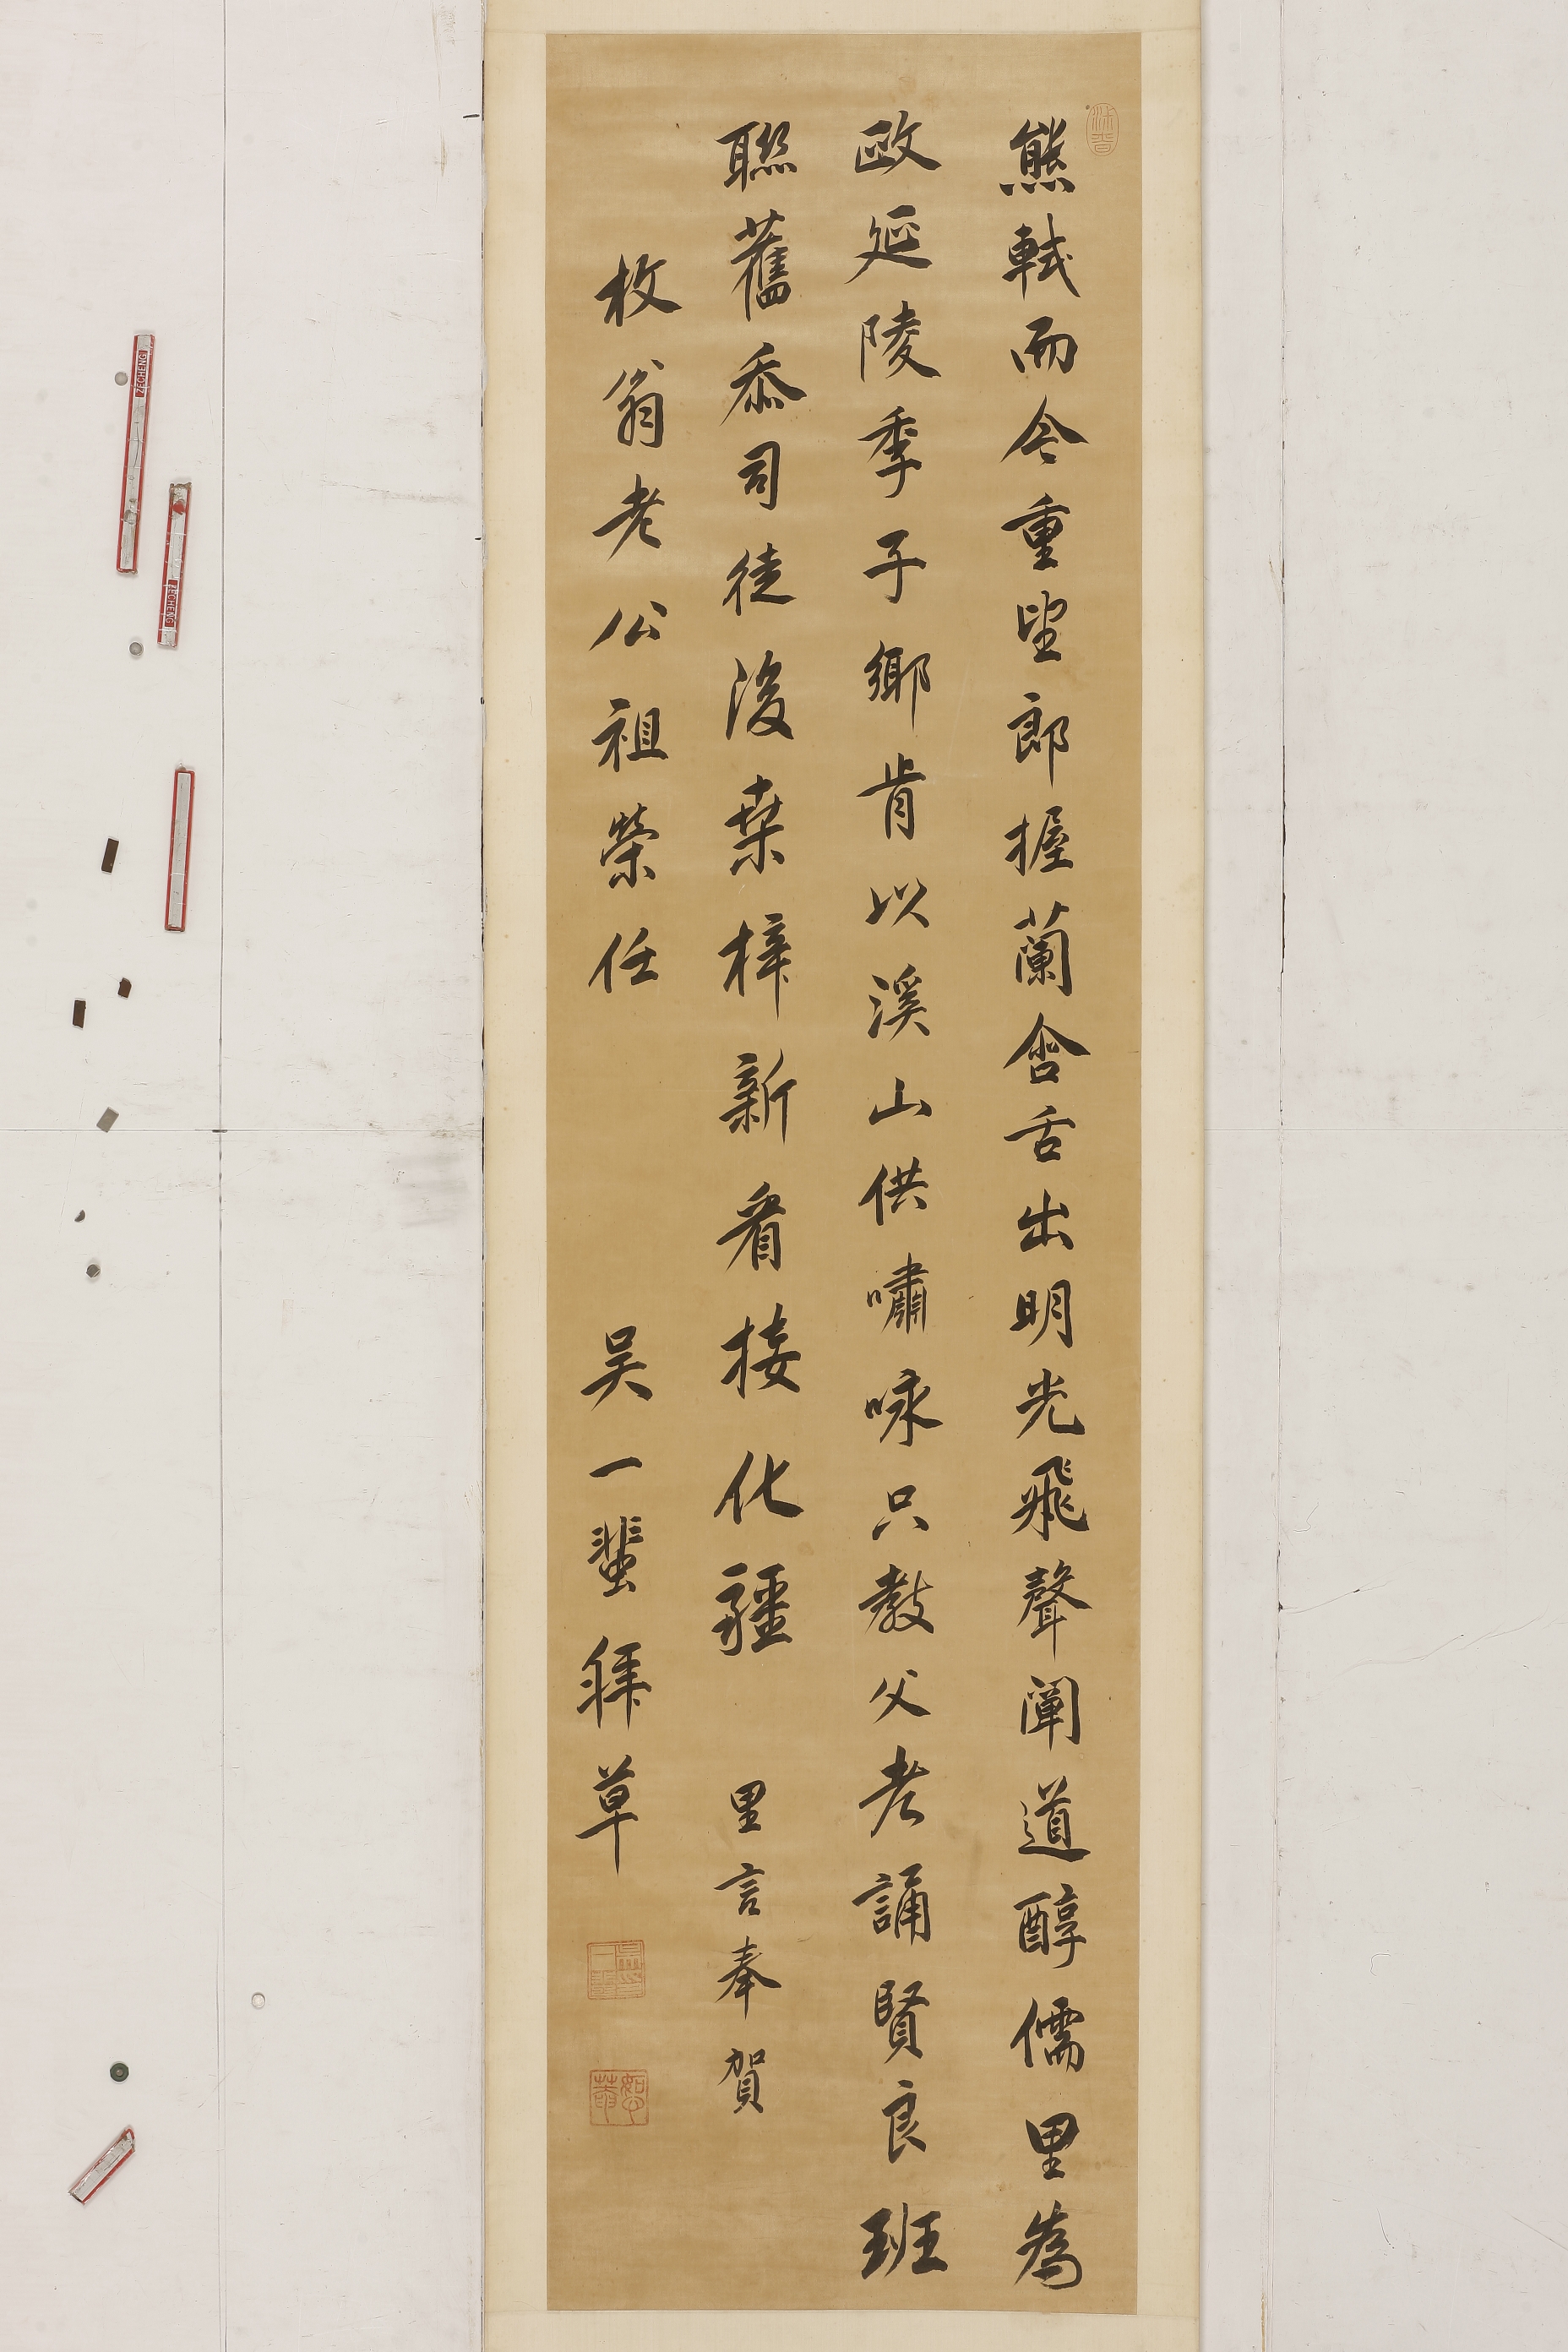 熊軾而今重望郎握蘭含舌出明光飛聲闡道醇儒里為
政延陵季子鄉肯以溪山供嘯咏只教父老誦賢良班
聯舊忝司徒後桑梓新看接化疆 里言奉賀
枚翁老公祖榮任 吴一蜚拜草
ZECHENG
ZECHENG